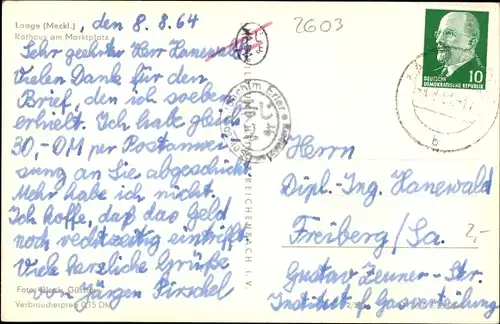 Laage (Meckl.)
Rathaus am Marktplatz
, den 8.8.64
Sehr geehrter Herr Hanewald
Vielen Dank für den
Brief, den ich soeben
erhielt. Ich habe gleich
30,-DM per Postanwei-
sung an Sie abgeschickt
Mehr habe ich nicht.
Ich hoffe, daß das Geld
noch rechtzeitig eintrifft.
Viele herzliche Grüße
von Jürgen Pirschel
Verbraucherpreis 0,15 DM
REICHENBACH I. V.
2603
10
DEUTSCHE
DEMOKRATISCHE REPUBLIK
b
Herrn
Dipl.-Ing. Hanewald
Freiberg/Sa.
2,-
Gustav Zeuner-Str.
Institut f. Gasverteilung